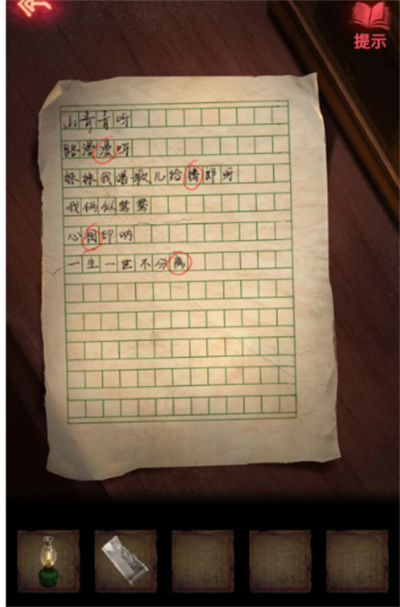 提示
山青青呀
路漫漫呀
妹妹我唱歌儿给情郎听
我俩似鸳鸯
心相印呐
一生一世不分离